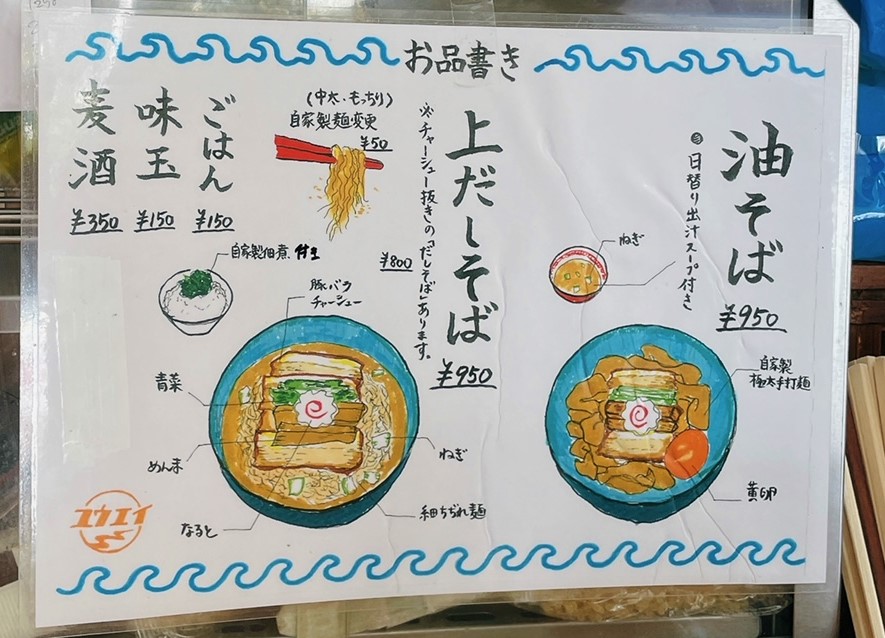 お品書き
油そば
¥950
日替り出汁スープ付き
ねぎ
自家製
極太手打麺
黄卵
上だしそば
¥950
※チャーシュー抜きの「だしそば」あります。
¥800
(中太・もっちり)
自家製麺変更
¥50
豚バラ
チャーシュー
青菜
めんま
なると
ねぎ
細ちぢれ麺
ごはん
¥150
味玉
¥150
麦酒
¥350
自家製佃煮付き
ユウエイ